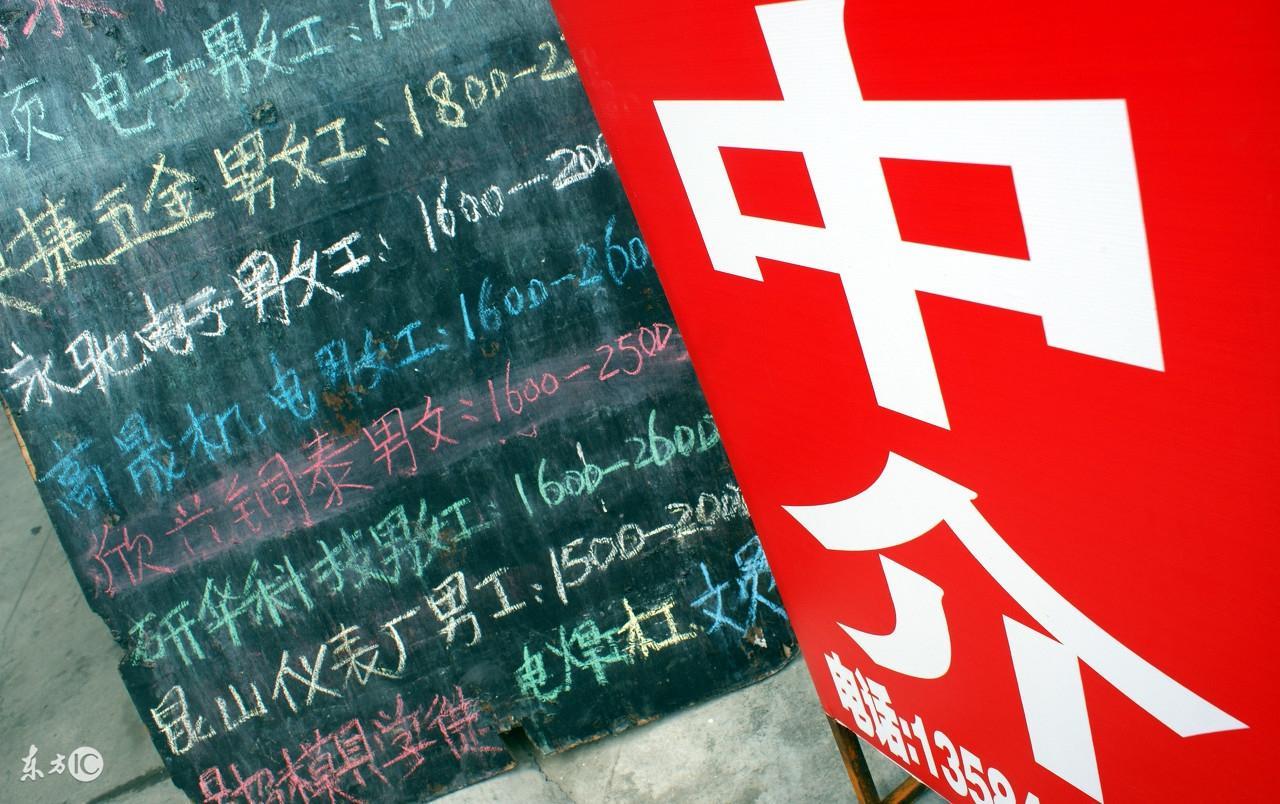 电子男女工:150
捷五金男女工:1800-2
永驰电子男女工:1600-200
高晟机电男女工:1600-260
欣兴铜泰男女:1600-2500
研华科技男女工 1600-2600
昆山仪表厂男工:1500-2000
模具学徒 电焊工 文员
中介
电话:1358
东方IC